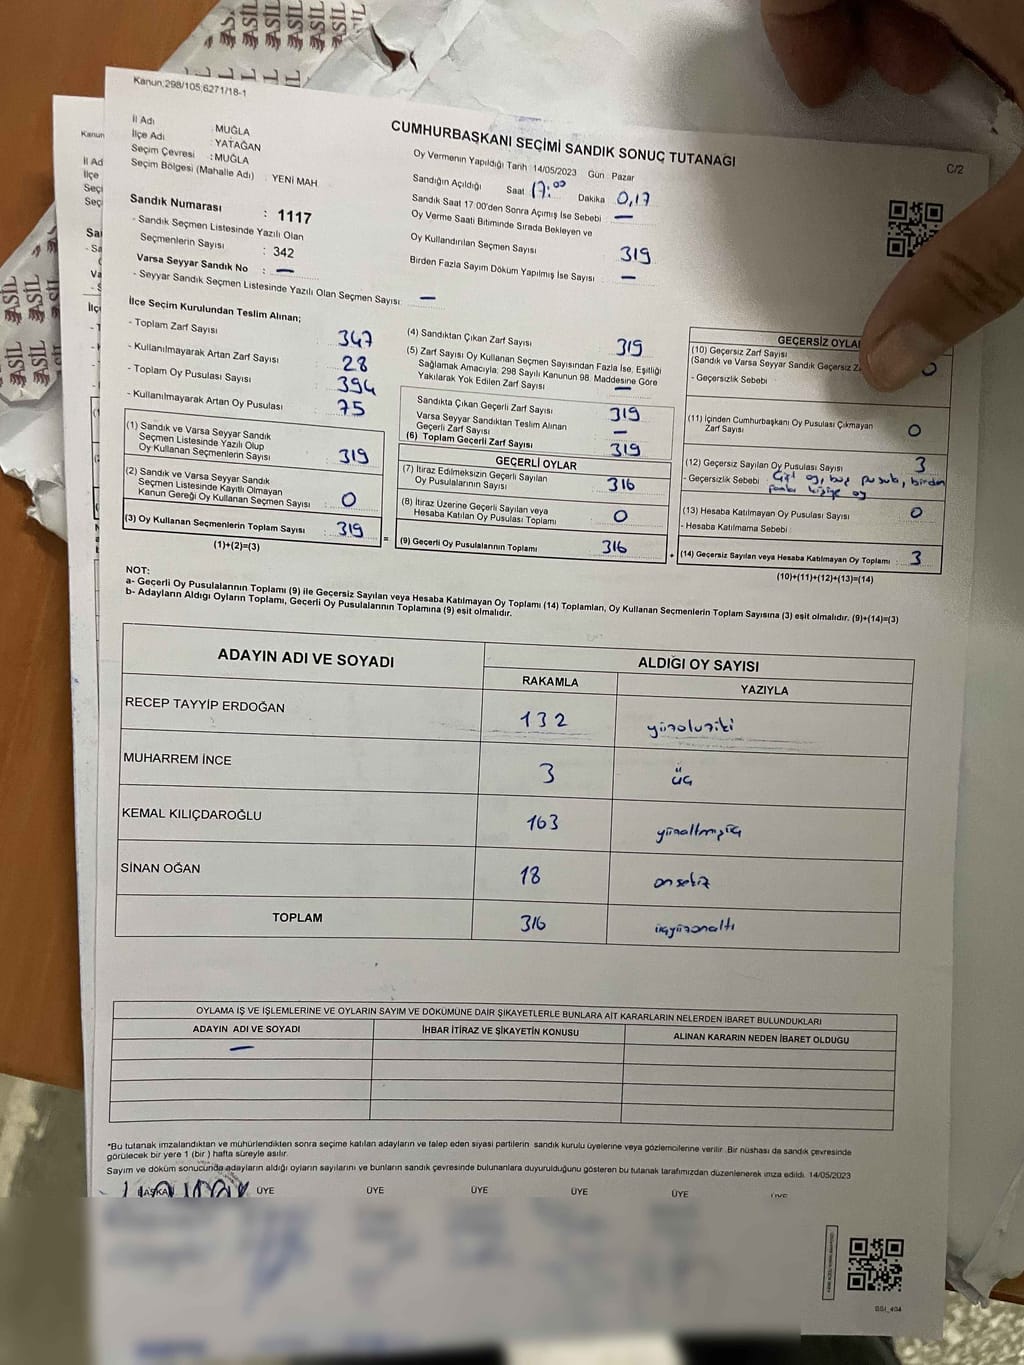 Kanun:298/105;6271/18-1
CUMHURBAŞKANI SEÇİMİ SANDIK SONUÇ TUTANAĞI
C/2
İl Adı : MUĞLA
İlçe Adı : YATAĞAN
Seçim Çevresi : MUĞLA
Seçim Bölgesi (Mahalle Adı) : YENİ MAH.
Sandık Numarası : 1117
- Sandık Seçmen Listesinde Yazılı Olan
Seçmenlerin Sayısı : 342
Varsa Seyyar Sandık No : —
- Seyyar Sandık Seçmen Listesinde Yazılı Olan Seçmen Sayısı: —
Oy Vermenin Yapıldığı Tarih 14/05/2023 Gün Pazar
Sandığın Açıldığı Saat 17:00 Dakika 0,17
Sandık Saat 17:00'den Sonra Açımış İse Sebebi —
Oy Verme Saati Bitiminde Sırada Bekleyen ve
Oy Kullandırılan Seçmen Sayısı 319
Birden Fazla Sayım Döküm Yapılmış İse Sayısı —
İlçe Seçim Kurulundan Teslim Alınan;
- Toplam Zarf Sayısı : 347
- Kullanılmayarak Artan Zarf Sayısı : 28
- Toplam Oy Pusulası Sayısı : 394
- Kullanılmayarak Artan Oy Pusulası : 75
(1) Sandık ve Varsa Seyyar Sandık
Seçmen Listesinde Yazılı Olup
Oy Kullanan Seçmenlerin Sayısı : 319
(2) Sandık ve Varsa Seyyar Sandık
Seçmen Listesinde Kayıtlı Olmayan
Kanun Gereği Oy Kullanan Seçmen Sayısı : 0
(3) Oy Kullanan Seçmenlerin Toplam Sayısı : 319
(1)+(2)=(3)
(4) Sandıktan Çıkan Zarf Sayısı 319
(5) Zarf Sayısı Oy Kullanan Seçmen Sayısından Fazla İse, Eşitliği
Sağlamak Amacıyla; 298 Sayılı Kanunun 98. Maddesine Göre
Yakılarak Yok Edilen Zarf Sayısı —
Sandıkta Çıkan Geçerli Zarf Sayısı 319
Varsa Seyyar Sandıktan Teslim Alınan
Geçerli Zarf Sayısı —
(6) Toplam Geçerli Zarf Sayısı 319
GEÇERLİ OYLAR
(7) İtiraz Edilmeksizin Geçerli Sayılan
Oy Pusulalarının Sayısı : 316
(8) İtiraz Üzerine Geçerli Sayılan veya
Hesaba Katılan Oy Pusulası Toplamı : 0
(9) Geçerli Oy Pusulalarının Toplamı : 316
GEÇERSİZ OYLA
(10) Geçersiz Zarf Sayısı 0
(Sandık ve Varsa Seyyar Sandık Geçersiz Z
- Geçersizlik Sebebi
(11) İçinden Cumhurbaşkanı Oy Pusulası Çıkmayan
Zarf Sayısı 0
(12) Geçersiz Sayılan Oy Pusulası Sayısı 3
- Geçersizlik Sebebi : Çift oy, boş pusula, birden
fazla kişiye oy
(13) Hesaba Katılmayan Oy Pusulası Sayısı 0
- Hesaba Katılmama Sebebi :
(14) Geçersiz Sayılan veya Hesaba Katılmayan Oy Toplamı : 3
(10)+(11)+(12)+(13)=(14)
NOT:
a- Geçerli Oy Pusulalarının Toplamı (9) ile Geçersiz Sayılan veya Hesaba Katılmayan Oy Toplamı (14) Toplamları, Oy Kullanan Seçmenlerin Toplam Sayısına (3) eşit olmalıdır. (9)+(14)=(3)
b- Adayların Aldığı Oyların Toplamı, Geçerli Oy Pusulalarının Toplamına (9) eşit olmalıdır.
ADAYIN ADI VE SOYADI
ALDIĞI OY SAYISI
RAKAMLA
YAZIYLA
RECEP TAYYİP ERDOĞAN 132 yüzotuziki
MUHARREM İNCE 3 üç
KEMAL KILIÇDAROĞLU 163 yüzaltmışüç
SİNAN OĞAN 18 onsekiz
TOPLAM 316 üçyüzonaltı
OYLAMA İŞ VE İŞLEMLERİNE VE OYLARIN SAYIM VE DÖKÜMÜNE DAİR ŞİKAYETLERLE BUNLARA AİT KARARLARIN NELERDEN İBARET BULUNDUKLARI
ADAYIN ADI VE SOYADI
İHBAR İTİRAZ VE ŞİKAYETİN KONUSU
ALINAN KARARIN NEDEN İBARET OLDUĞU
—
*Bu tutanak imzalandıktan ve mühürlendikten sonra seçime katılan adayların ve talep eden siyasi partilerin sandık kurulu üyelerine veya gözlemcilerine verilir. Bir nüshası da sandık çevresinde
görülecek bir yere 1 (bir) hafta süreyle asılır.
Sayım ve döküm sonucunda adayların aldığı oyların sayılarını ve bunların sandık çevresinde bulunanlara duyurulduğunu gösteren bu tutanak tarafımızdan düzenlenerek imza edildi. 14/05/2023
BAŞKAN ÜYE ÜYE ÜYE ÜYE ÜYE ÜYE